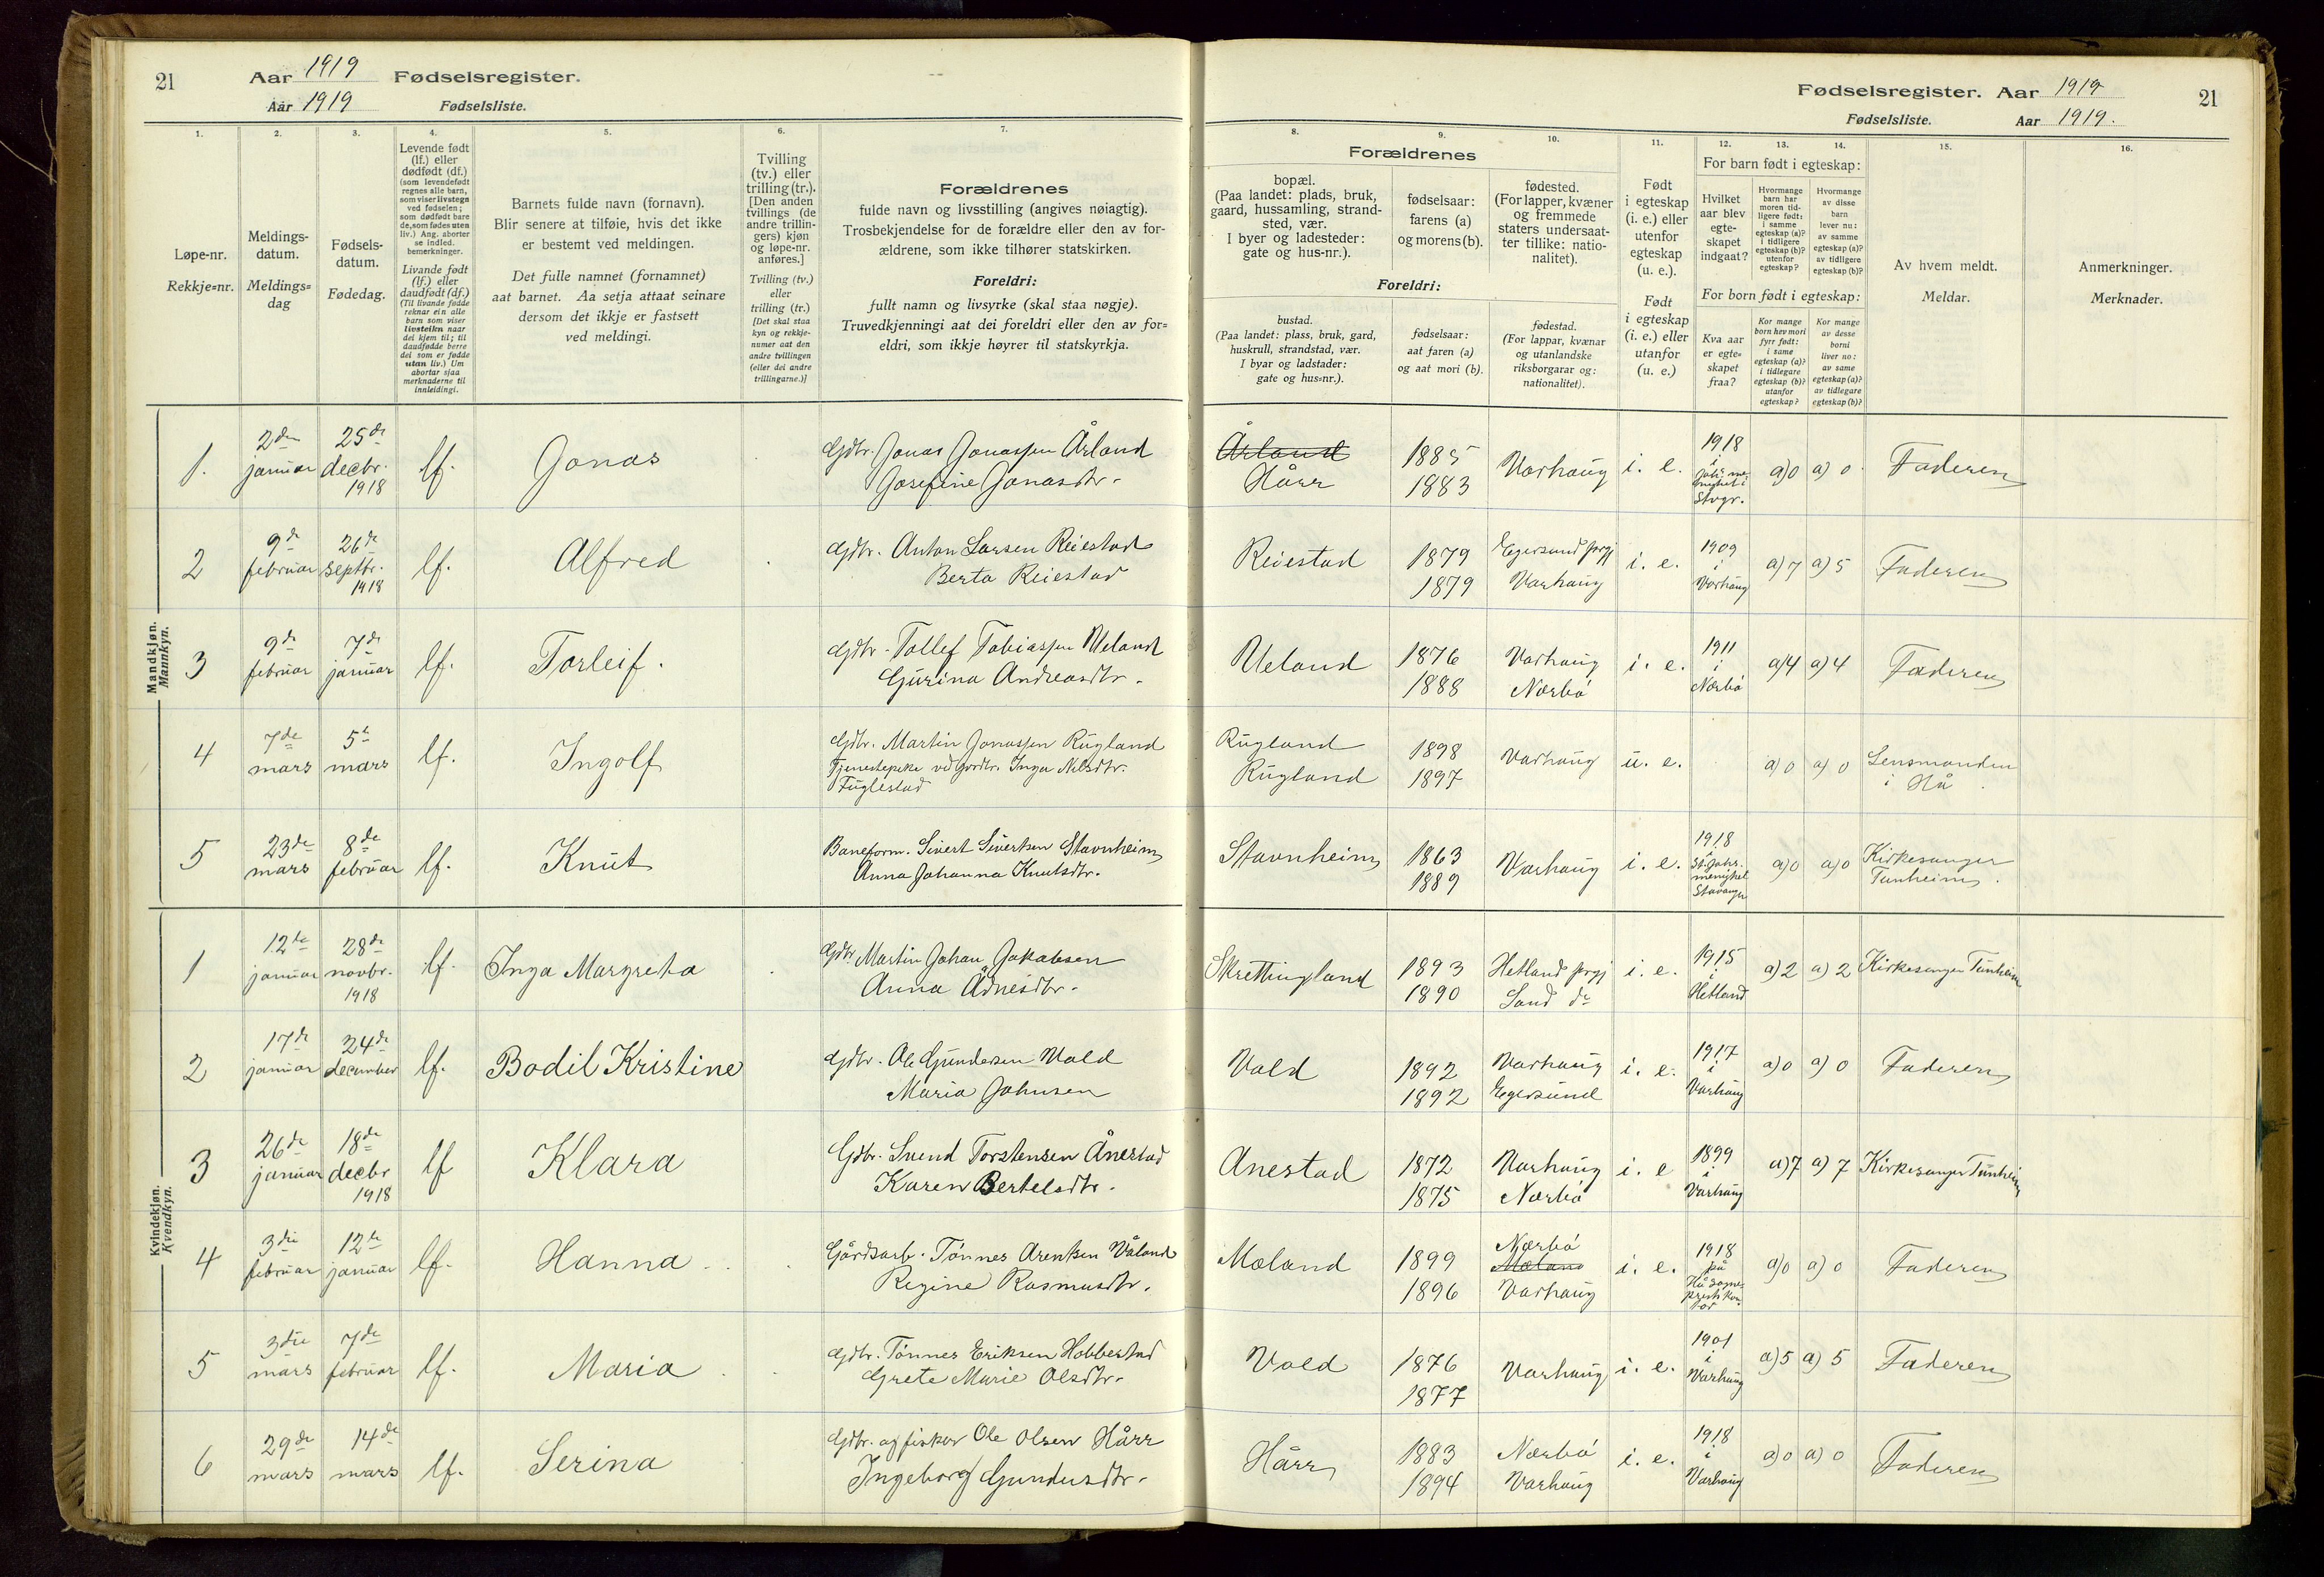 21
Aar 1919 Fødselsregister.
Aar 1919 Fødselsliste.
1.
2.
3.
4.
5.
6.
7.
Løpe-nr.
Rekkje=nr.
Meldings-
datum.
Meldings=
dag
Fødsels-
datum.
Fødedag.
Levende født
(lf.) eller
dødfødt (df.)
(som levendefødt
regnes alle barn,
som viser livstegn
ved fødselen;
som dødfødt bare
de, som fødes uten
liv.) Ang. aborter
se indled.
bemerkninger.
Livande født
(lf.) eller
daudfødt (df.)
(Til livande fødde
reknar ein alle
barn som viser
livsteikn naar
dei kjem til; til
daudfødde berre
dei som er fødde
utan liv.) Um
abortar sjaa
merknaderne til
innleidingi.
Barnets fulde navn (fornavn).
Blir senere at tilføie, hvis det ikke
er bestemt ved meldingen.
Det fulle namnet (fornamnet)
aat barnet. Aa setja attaat seinare
dersom det ikkje er fastsett
ved meldingi.
Tvilling
(tv.) eller
trilling (tr.).
[Den anden
tvillings (de
andre trillin-
gers) kjøn
og løpe-nr.
anføres.]
Tvilling (tv.)
eller
trilling (tr.)
[Det skal staa
kyn og rekkje-
numer aat den
andre tvillingen
(eller dei andre
trillingarne.)]
Forældrenes
fulde navn og livsstilling (angives nøiagtig).
Trosbekjendelse for de forældre eller den av for-
ældrene, som ikke tilhører statskirken.
Foreldri:
fullt namn og livsyrke (skal staa nøgje).
Truvedkjenningi aat dei foreldri eller den av for=
eldri, som ikkje høyrer til statskyrkja.
Fødselsregister. Aar 1919
21
Fødselsliste. Aar 1919.
8.
9.
10.
11.
12.
13.
14.
15.
16.
Forældrenes
bopæl.
(Paa landet: plads, bruk,
gaard, hussamling, strand-
sted, vær.
I byer og ladesteder:
gate og hus-nr.).
fødselsaar:
farens (a)
og morens (b).
fødested.
(For lapper, kvæner
og fremmede
staters undersaat-
ter tillike: natio-
nalitet).
Foreldri:
bustad.
(Paa landet: plass, bruk, gard,
huskrull, strandstad, vær.
I byar og ladstader:
gate og hus=nr.).
fødselsaar:
aat faren (a)
og aat mori (b).
fødestad.
(For lappar, kvænar
og utanlandske
riksborgarar og:
nationalitet).
Født
i egteskap
(i. e.) eller
utenfor
egteskap
(u. e.).
Født
i egteskap
(i. e.) eller
utanfor
(u. e.)
For barn født i egteskap:
Hvilket
aar blev
egte-
skapet
indgaat?
Hvormange
barn har
moren tid-
ligere født:
i samme
egteskap (a)?
i tidligere
egteskap (b)?
utenfor
egteskap?
Hvormange
av disse
barn
lever nu:
av samme
egteskap (a)?
av tidligere
egteskap (b)?
For born født i egteskap:
Kva aar
er egte=
skapet
fraa?
Kor mange
born hev mori
fyrr født:
i same
egteskap (a)?
i tidlegare
egteskap (b)?
utanfor
egteskap?
Kor mange
av desse
borni
liver no:
av same
egteskap (a)?
av tidlegare
egteskap (b)?
Av hvem meldt.
Meldar.
Anmerkninger.
Merknader.
Mandkjøn.
Mannkyn.
1. 2den januar 25de decbr. 1918 lf. Jonas Gdbr. Jonas Jonassen Årland Josefine Jonasdtr. Årland Hårr 1885 1883 Varhaug i. e. 1918 i Stvgr. a) 0 a) 0 Faderen
2 9de februar 26de septbr. 1918 lf. Alfred Gdbr. Anton Larsen Reiestad Berta Reiestad Reiestad 1879 1879 Egersund prgj Varhaug i. e. 1909 i Varhaug a) 7 a) 5 Faderen
3 9de februar 7de januar lf. Torleif. Gdbr. Tollef Tobiassen Ueland Gurina Andreasdtr. Ueland 1876 1888 Varhaug Nærbö i. e. 1911 i Nærbö a) 4 a) 4 Faderen
4 7de mars 5te mars lf. Ingolf Gdbr. Martin Jonassen Rugland Tjenestepike ved gardbr. Inga Nilsdtr. Fuglestad Rugland Rugland 1898 1897 Varhaug u. e. a) 0 a) 0 Lensmanden i Hå
5 23de mars 8de februar lf. Knut Baneform. Sivert Sivertsen Stavnheim Anna Johanna Knutsdtr. Stavnheim 1863 1889 Varhaug i. e. 1918 i St. Johs. menighet Stavanger a) 0 a) 0 Kirkesanger Tunheim.
Kvindekjøn.
Kvendkyn.
1 12te januar 28de novbr. 1918 lf. Inga Margreta Gdbr. Martin Johan Jakobsen Anna Ådnesdtr. Skrettingland 1893 1890 Hetland prgj Sand do i. e. 1915 i Hetland a) 2 a) 2 Kirkesanger Tunheim
2 17de januar 24de december lf. Bodil Kristine Gdbr. Ole Gundersen Vold Maria Johnsen Vold 1892 1892 Varhaug Egersund i. e. 1917 i Varhaug a) 0 a) 0 Faderen
3 26de januar 18de decbr 1918 lf Klara Gdbr. Svend Torstensen Ånestad Karen Bertelsdtr. Anestad 1872 1875 Varhaug Nærbö i. e 1899 i Varhaug a) 7 a) 7 Kirkesanger Tunheim
4 3die februar 12te januar lf. Hanna Gårdsarb. Tönnes Arentsen Våland Regine Rasmusdtr. Moland 1899 1896 Nærbö Moland Varhaug i. e. 1918 på Hå sogneprestkontor a) 0 a) 0 Faderen
5 3die mars 7de februar lf. Maria Gdbr. Tönnes Eriksen Hobberstad Grete Marie Olsdtr. Vold 1876 1877 Varhaug i. e. 1901 i Varhaug a) 5 a) 5 Faderen
6 29de mars 14de mars lf. Serina Gdbr. og fisker Ole Olsen Hårr Ingeborg Gundersdtr. Hårr 1883 1894 Nærbö Varhaug i. e. 1918 i Varhaug a) 0 a) 0 Faderen